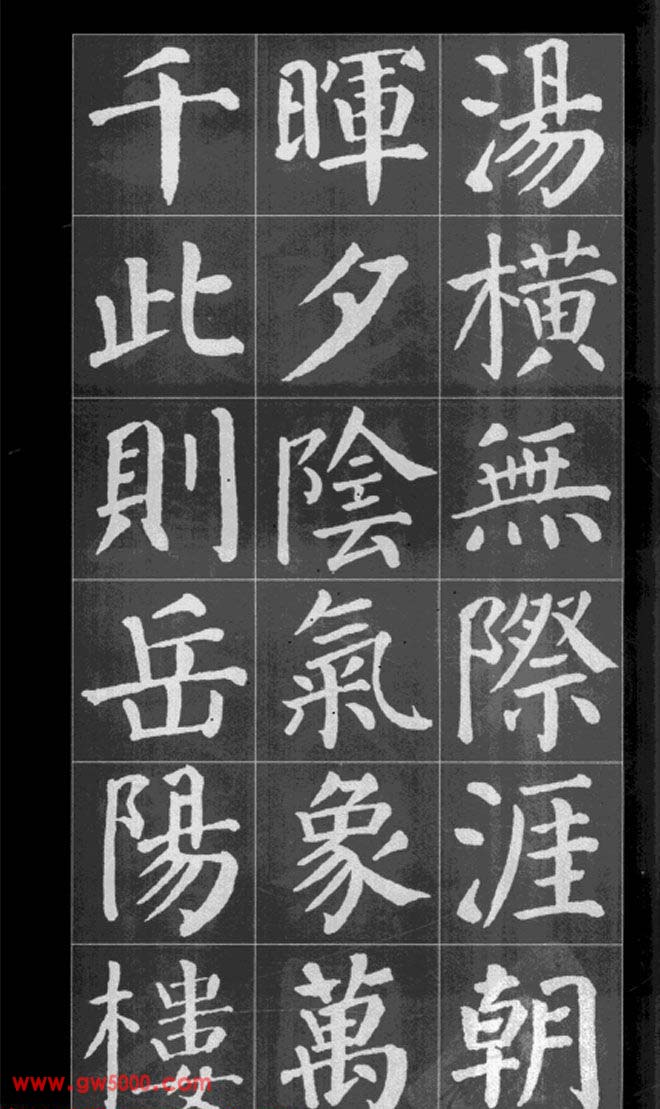 湯橫無際涯朝
暉夕陰氣象萬
千此則岳陽樓
www.gw5000.com